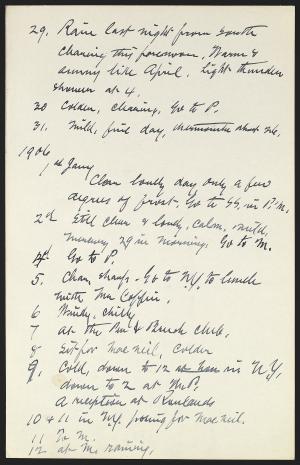 29. Rain last night from south
clearing this forenoon, Warm &
sunny like April. light thunder
shower at 4.
30 Colder, clearing. Go to P.
31. Mild, fine day, thermometer about 36.
1906
1st Jany
Clear lovely day only a few
degrees of frost. Go to SS. in P.M.
2d Still clear & lovely, calm, mild,
Mercury 29 in morning. Go to M.
4. Go to P.
5. Clear, sharp - Go to N.Y. to lunch
with Mr Coffin,
6 Windy, chilly
7 at the &
8 Sit for MacNeil, Colder
9. Cold, down to 12 in N.Y,
down to 2 at
A reception at Rowlands
10 & 11 in N.Y. posing for MacNeil.
11 To M.
12 at M. raining,